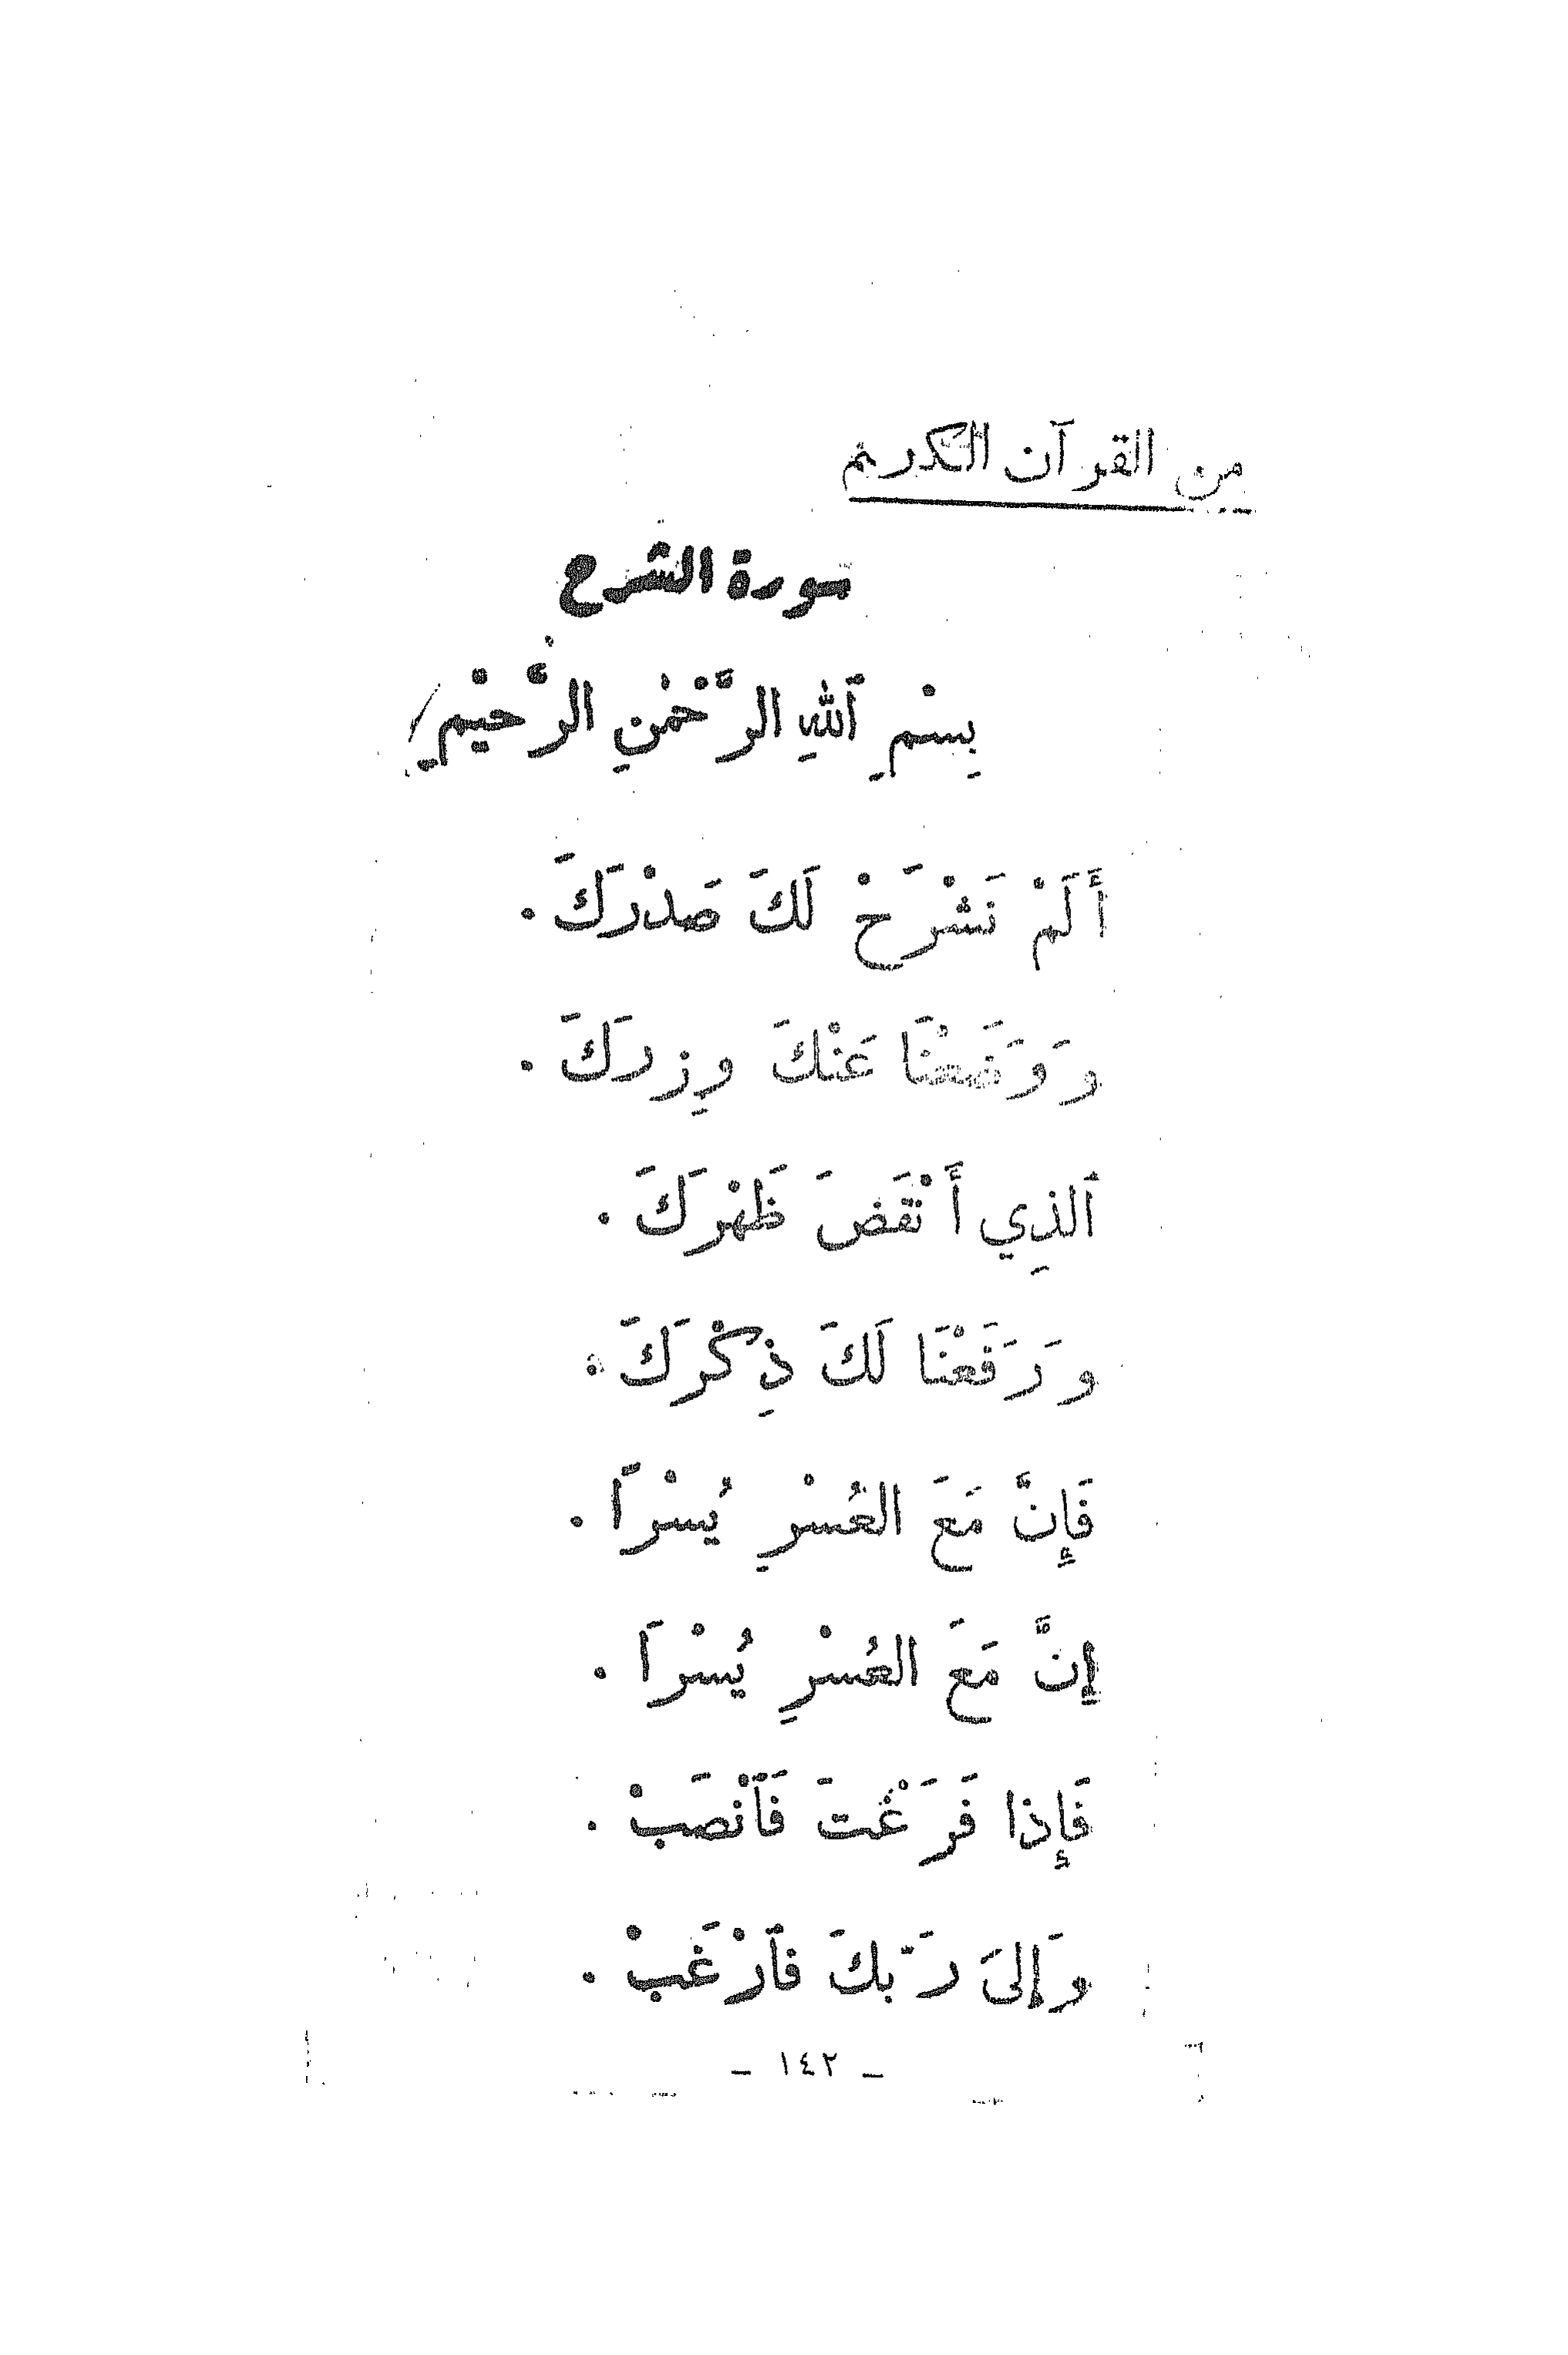 من القرآن الكريم
سورة الشرح
بِسْمِ ٱللهِ الرَّحْمٰنِ الرَّحِيْمِ
أَلَمْ نَشْرَحْ لَكَ صَدْرَكَ .
وَوَضَعْنَا عَنْكَ وِزرَكَ .
ٱلذِي أَنْقَضَ ظَهْرَكَ .
ورَفَعْنَا لَكَ ذِكْرَكَ .
فَإِنَّ مَعَ العُسْرِ يُسْرًا .
إِنَّ مَعَ العُسْرِ يُسْرًا .
فَإِذا فَرَغْتَ فَٱنْصَبْ .
وَإِلىَ رَبّكَ فٱرْغَبْ .
– ١٤٢ –